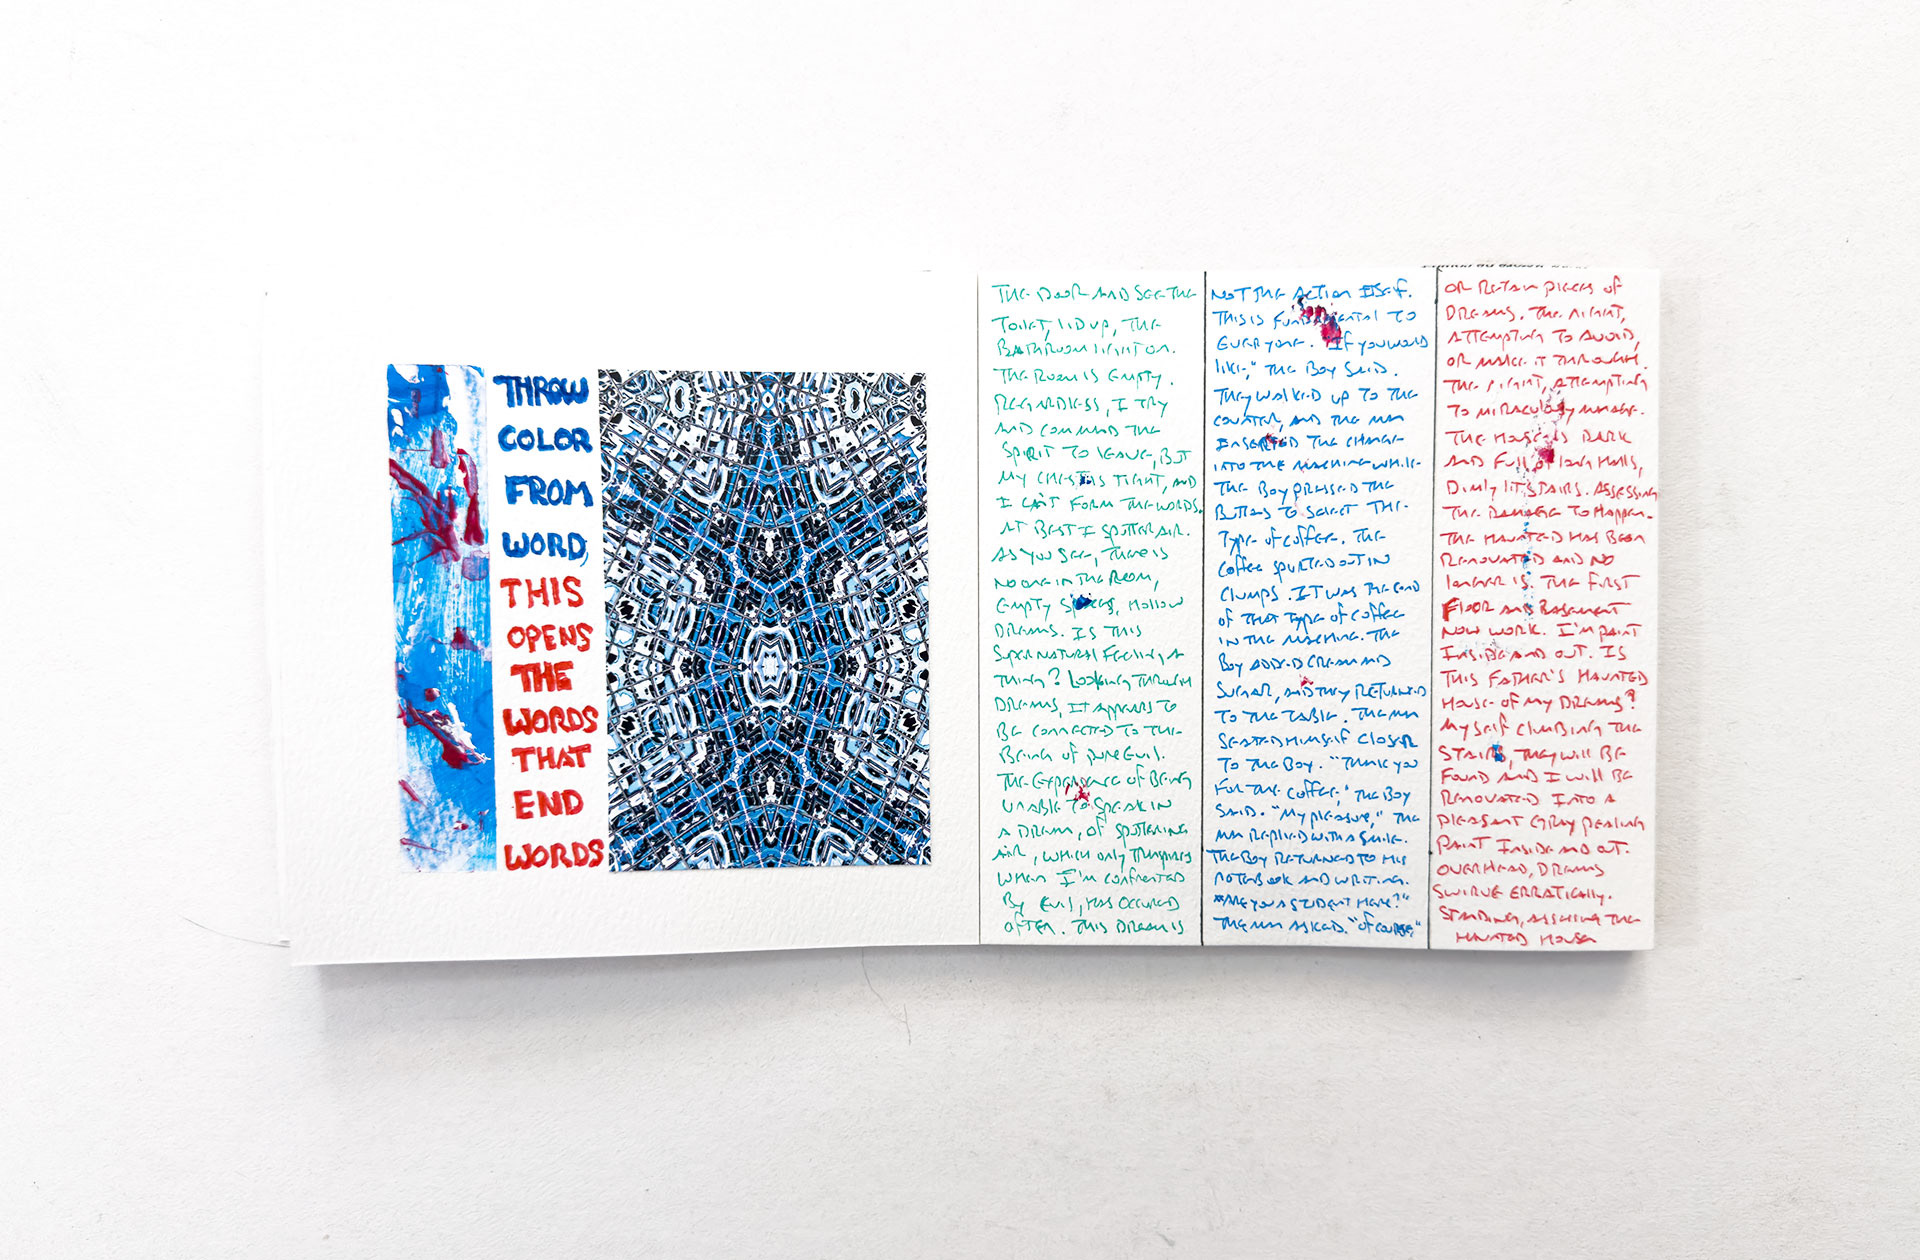 THROW
COLOR
FROM
WORD,
THIS
OPENS
THE
WORDS
THAT
END
WORDS
THE DOOR AND SEE THE
TOILET, LID UP, THE
BATHROOM LIGHT ON.
THE ROOM IS EMPTY.
REGARDLESS, I TRY
AND COMMAND THE
SPIRIT TO LEAVE, BUT
MY CHEST IS TIGHT, AND
I CAN'T FORM THE WORDS.
AT BEST I SPUTTER AIR.
AS YOU SEE, THERE IS
NO ONE IN THE ROOM,
EMPTY SPACES, HOLLOW
DREAMS. IS THIS
SUPERNATURAL FEELING A
THING? LOOKING THROUGH
DREAMS, IT APPEARS TO
BE CONNECTED TO THE
BEING OF PURE EVIL.
THE EXPERIENCE OF BEING
UNABLE TO SPEAK IN
A DREAM, OF SPUTTERING
AIR, WHICH ONLY TRANSPIRES
WHEN I'M CONFRONTED
BY EVIL, HAS OCCURED
OFTEN. THIS DREAM IS
NOT THE ACTION ITSELF.
THIS IS FUNDAMENTAL TO
EVERYONE. IF YOU WOULD
LIKE," THE BOY SAID.
THEY WALKED UP TO THE
COUNTER, AND THE MAN
INSERTED THE CHANGE
INTO THE MACHINE WHILE
THE BOY PRESSED THE
BUTTONS TO SELECT THE
TYPE OF COFFEE. THE
COFFEE SPURTED OUT IN
CLUMPS. IT WAS THE END
OF THAT TYPE OF COFFEE
IN THE MACHINE. THE
BOY ADDED CREAM AND
SUGAR, AND THEY RETURNED
TO THE TABLE. THE MAN
SEATED HIMSELF CLOSER
TO THE BOY. "THANK YOU
FOR THE COFFEE," THE BOY
SAID. "MY PLEASURE," THE
MAN REPLIED WITH A SMILE.
THE BOY RETURNED TO HIS
NOTEBOOK AND WRITING.
"ARE YOU A STUDENT HERE?"
THE MAN ASKED. "OF COURSE,"
OR RETAIN PIECES OF
DREAMS. THE NIGHT,
ATTEMPTING TO AVOID,
OR MAKE IT THROUGH.
THE NIGHT, ATTEMPTING
TO MIRACULOUSLY MANAGE.
THE HOUSE IS DARK
AND FULL OF LONG HALLS,
DIMLY LIT STAIRS. ASSESSING
THE DAMAGE TO HAPPEN.
THE HAUNTED HAS BEEN
RENOVATED AND NO
LONGER IS. THE FIRST
FLOOR AND BASEMENT
NOW WORK. I'M PAINT
INSIDE AND OUT. IS
THIS FATHER'S HAUNTED
HOUSE OF MY DREAMS?
MYSELF CLIMBING THE
STAIRS, THEY WILL BE
FOUND AND I WILL BE
RENOVATED INTO A
PLEASANT GRAY PEALING
PAINT INSIDE AND OUT.
OVERHEAD, DREAMS
SWIRVE ERRATICALLY.
STANDING, THE
HAUNTED HOUSE